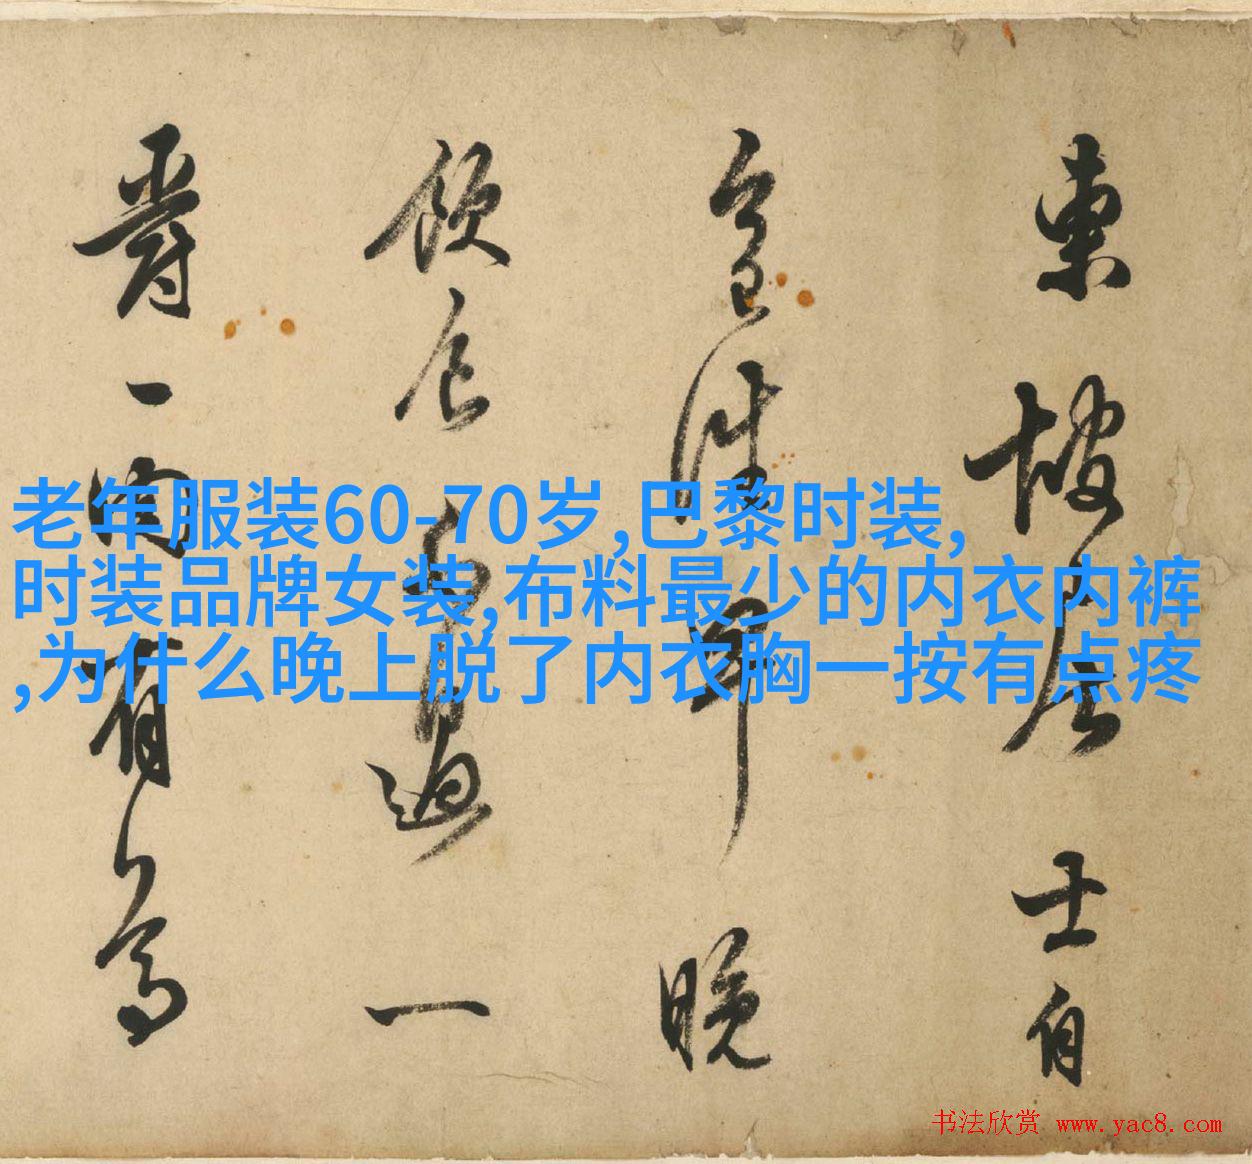 東坡居士自
今日往早晚
飲食不過一
爵一肉有尊
老年服装60-70岁,巴黎时装,
时装品牌女装,布料最少的内衣内裤
,为什么晚上脱了内衣胸一按有点疼
书法欣赏 www.yac8.com